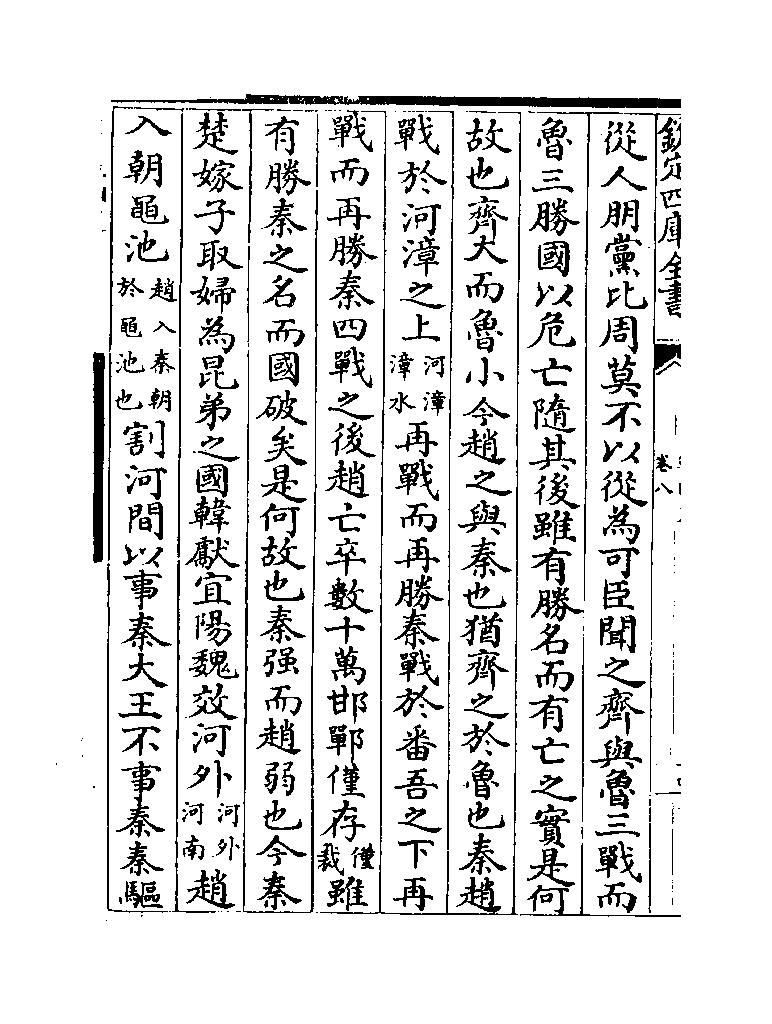 欽定四庫全書
卷八
從人朋黨比周莫不以從為可臣聞之齊與魯三戰而
魯三勝國以危亡隨其後雖有勝名而有亡之實是何
故也齊大而魯小今趙之與秦也猶齊之於魯也秦趙
戰於河漳之上河漳漳水再戰而再勝秦戰於番吾之下再
戰而再勝秦四戰之後趙亡卒數十萬邯鄲僅存僅裁雖
有勝秦之名而國破矣是何故也秦强而趙弱也今秦
楚嫁子取婦為昆弟之國韓獻宜陽魏效河外河外河南趙
入朝黽池趙入秦朝於黽池也割河間以事秦大王不事秦秦驅